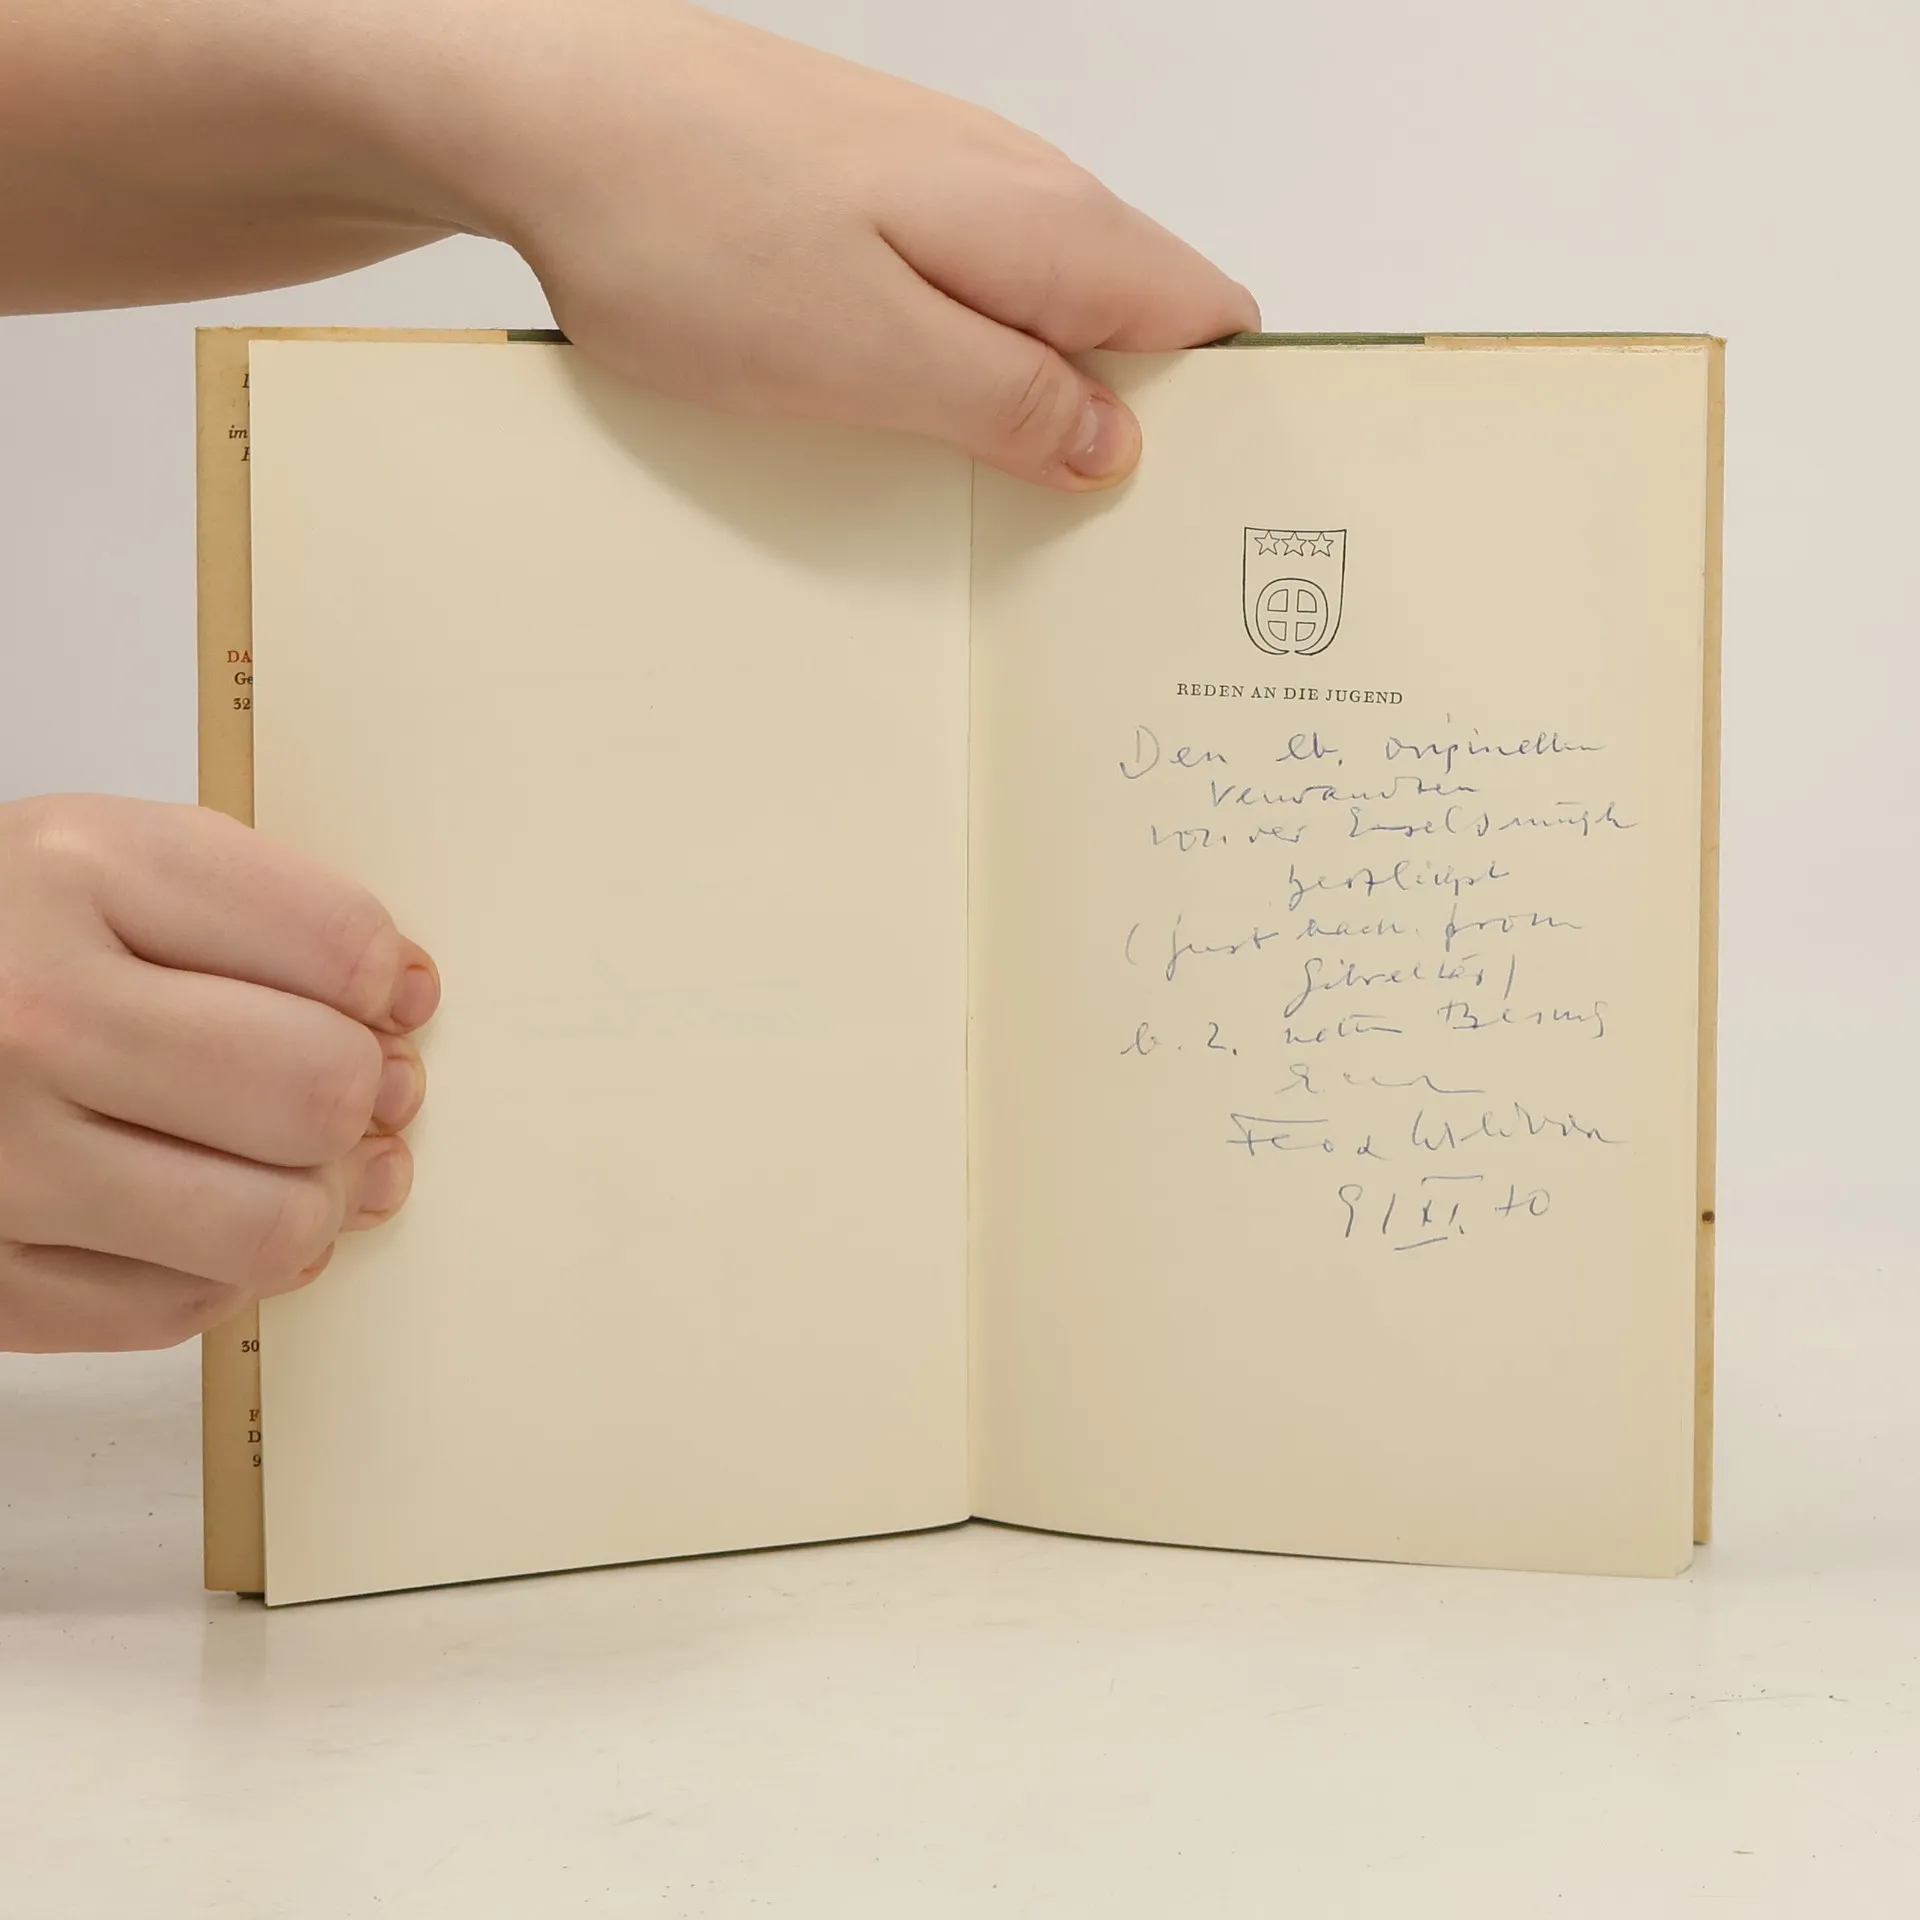 im
DA
Ge
32
30
F
D
9
REDEN AN DIE JUGEND
Den lb. originellen
Verwandten
von der Engelsmügh
herzlichst
(just back from
Gibraltar)
b. z. netten Besuch
Euer
9/XI. 70